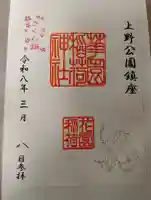 上野公園鎮座
花園
稲荷
神社
花園
稲荷
令和八年三月八日参拝